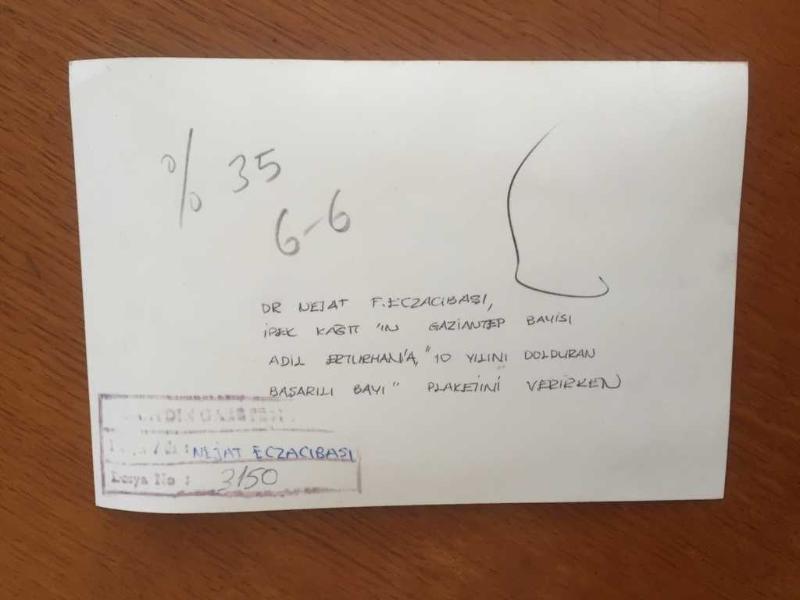 % 35
6-6
DR NEJAT F. ECZACIBAŞI,
İPEK KAĞIT 'IN GAZİANTEP BAYİSİ
ADİL ERTURHAN'A, "10 YILINI DOLDURAN
BAŞARILI BAYİ" PLAKETİNİ VERİRKEN
NEJAT ECZACIBAŞI
Dosya No : 3150